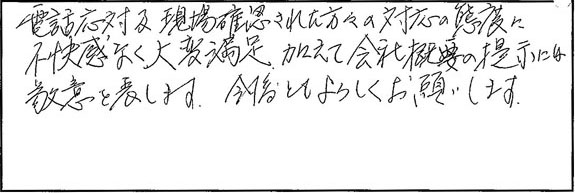 電話応対及現場確認された方々の対応の態度に
不快感なく大変満足. 加えて会社概要の提示には
敬意を表します. 今後ともよろしくお願いします.